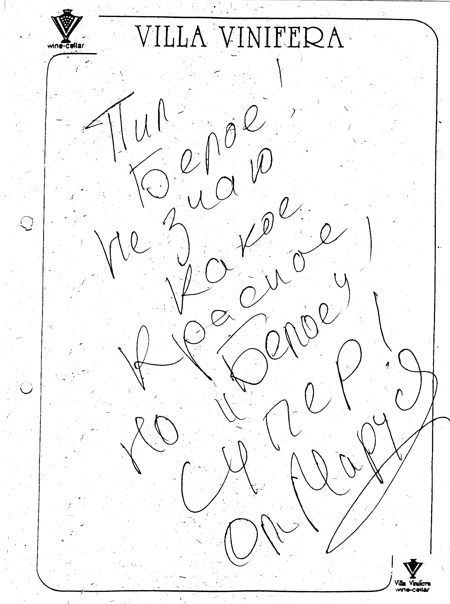 wine-cellar
VILLA VINIFERA
Пил
Белое!
Не знаю
какое
красное,
но "Белое"!
СУПЕР!
От Маруся
Villa Vinifera
wine-cellar